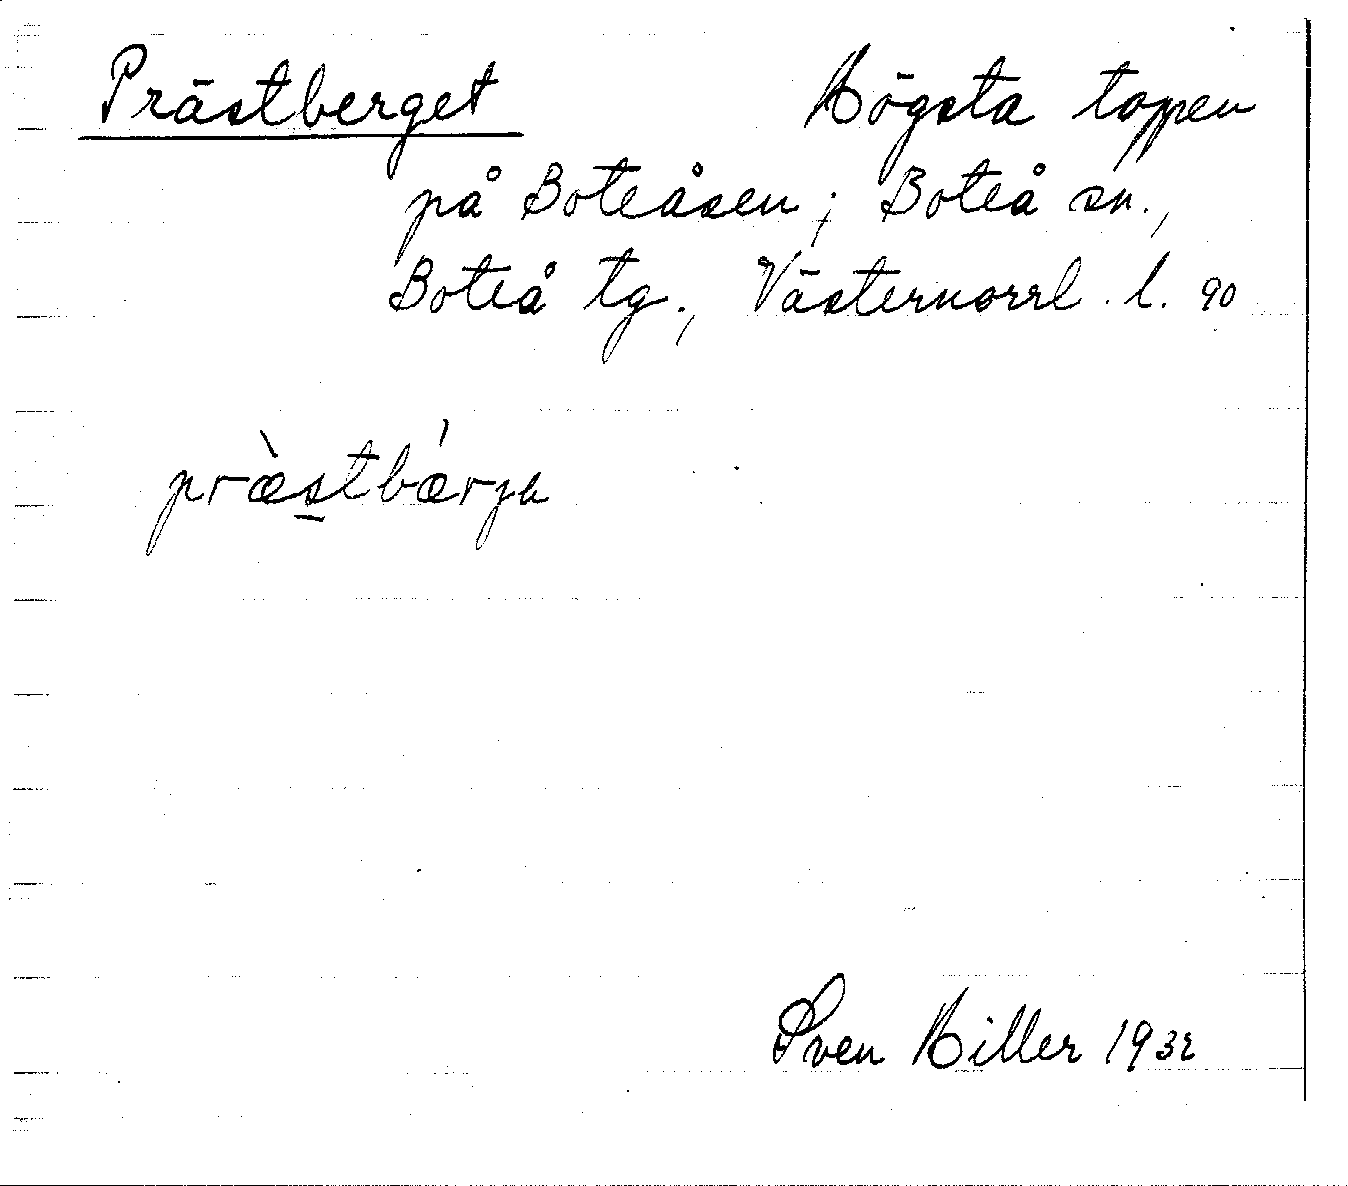 Prästberget Högsta toppen
på Boteåsen; Boteå sn.,
Boteå tg., Västernorrl. l. 90
præ̀stbǽrjə
Sven Hiller 1932